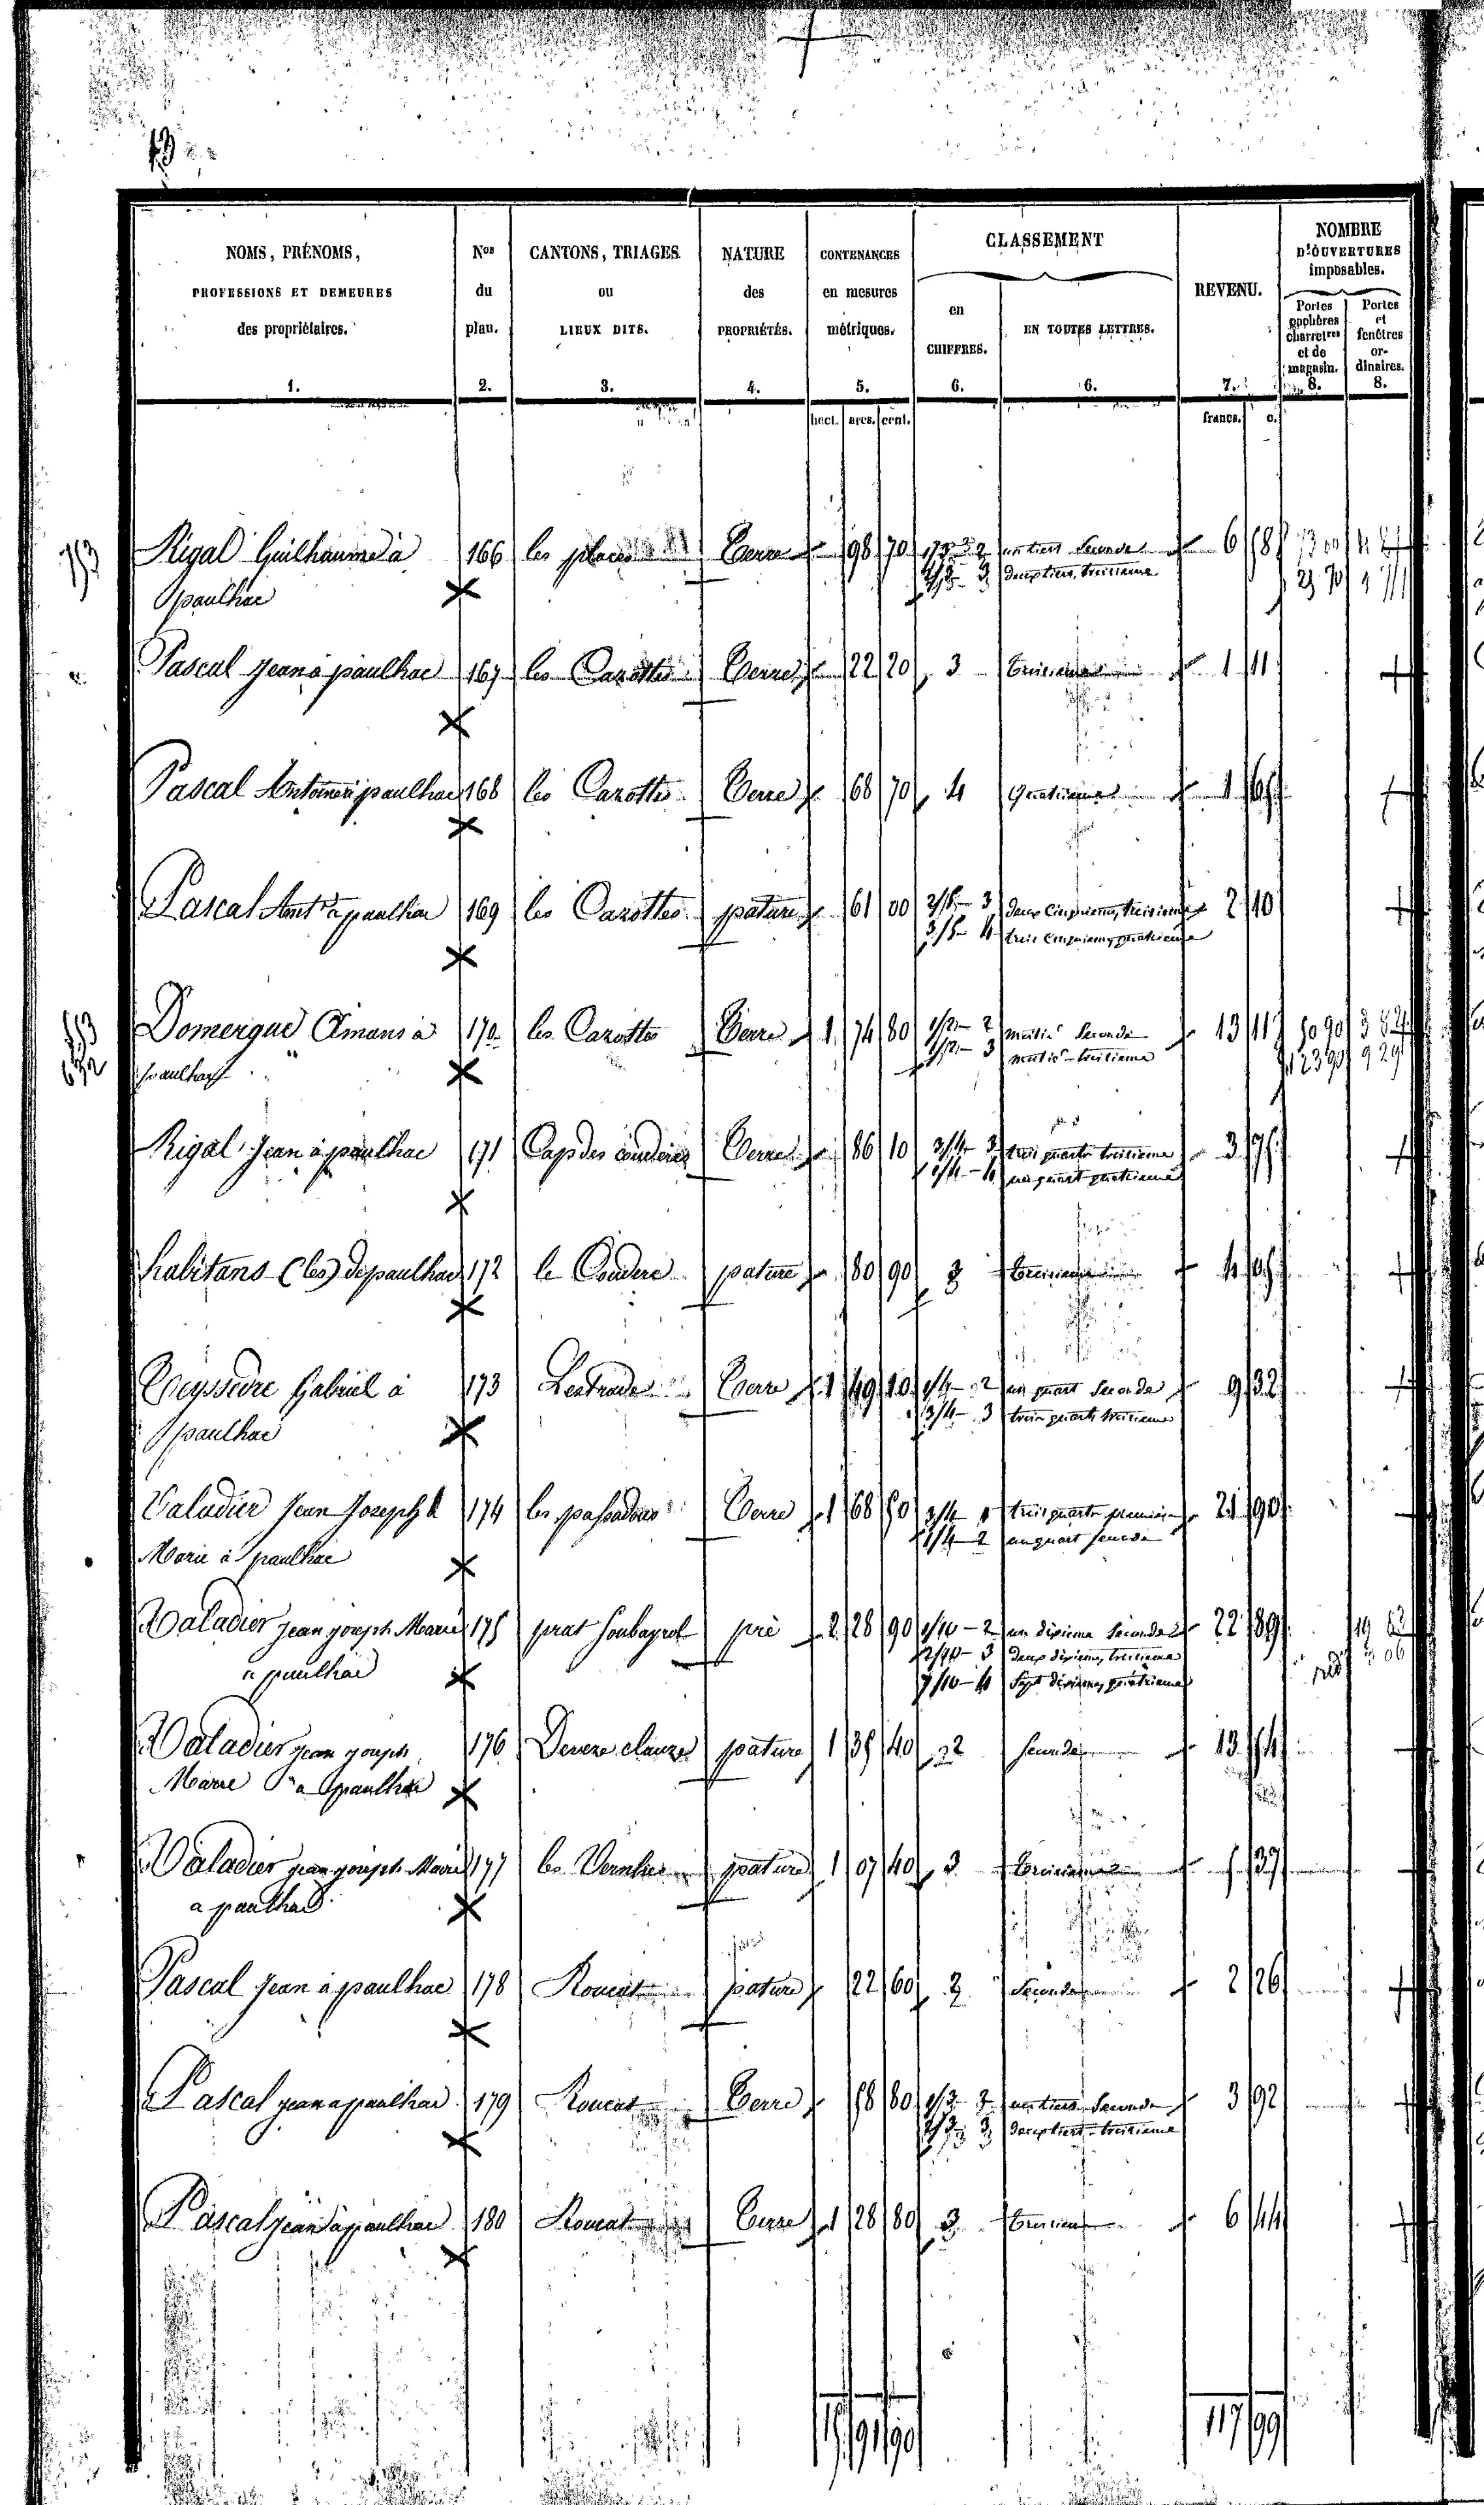 NOMS, PRÉNOMS, PROFESSIONS ET DEMEURES des propriétaires. 1.
Nos du plan. 2.
CANTONS, TRIAGES ou LIEUX DITS. 3.
NATURE des PROPRIÉTÉS. 4.
CONTENANCES en mesures métriques. 5.
CLASSEMENT
en CHIFFRES. 6.
EN TOUTES LETTRES. 6.
REVENU. 7.
NOMBRE D'OUVERTURES imposables.
Portes cochères charretres et de magasin. 8.
Portes et fenêtres ordinaires. 8.
hect. ares. cent. francs. c.
Rigal Guilhaume à 166 les places Terre 98 70 1/3 2 un tiers seconde 6
paulhac 2/3 3 deux tiers troisieme
Pascal Jean à paulhac 167 les Cazottes Terre 22 20 3 troisieme 1 11
Pascal Antoine à paulhac 168 les Cazottes Terre 68 70 4 quatrieme 1 65
Pascal Ant.e à paulhac 169 les Cazottes pature 61 00 2/5 3 deux cinquieme, troisieme 2 10
3/5 4 trois cinquieme, quatrieme
Domergue Amans à 170 les Cazottes Terre 1 74 80 1/2 2 moitié seconde 13 11
paulhac 1/2 3 moitié troisieme
Rigal Jean à paulhac 171 Cap des couderc Terre 86 10 3/4 3 trois quarts troisieme 3 75
1/4 4 un quart quatrieme
habitans (les) de paulhac 172 le Couderc pature 80 90 3 troisieme 4 05
Teyssedre Gabriel à 173 Lestrade Terre 1 49 10 1/4 2 un quart seconde 9 32
paulhac 3/4 3 trois quarts troisieme
Valadier Jean Joseph 174 les passadous Terre 1 68 50 3/4 1 trois quarts premiere 21 90
Marie à paulhac 1/4 2 un quart seconde
Valadier jean joseph Marie 175 prat Soubayrol pré 2 28 90 1/10 2 un dixieme seconde 22 89
a paulhac 2/10 3 deux dixieme, troisieme
7/10 4 sept dixieme, quatrieme
Valadier jean joseph 176 Deveze clauze pature 1 35 40 2 seconde 13 54
Marie a paulhac
Valadier jean joseph Marie 177 les Vernhes pature 1 07 40 3 troisieme 5 37
a paulhac
Pascal Jean à paulhac 178 Roucat pature 22 60 2 seconde 2 26
Pascal jean a paulhac 179 Roucat Terre 58 80 1/3 2 un tiers seconde 3 92
2/3 3 deux tiers troisieme
Pascal jean à paulhac 180 Roucat Terre 1 28 80 3 troisieme 6 44
15 91 90 117 99